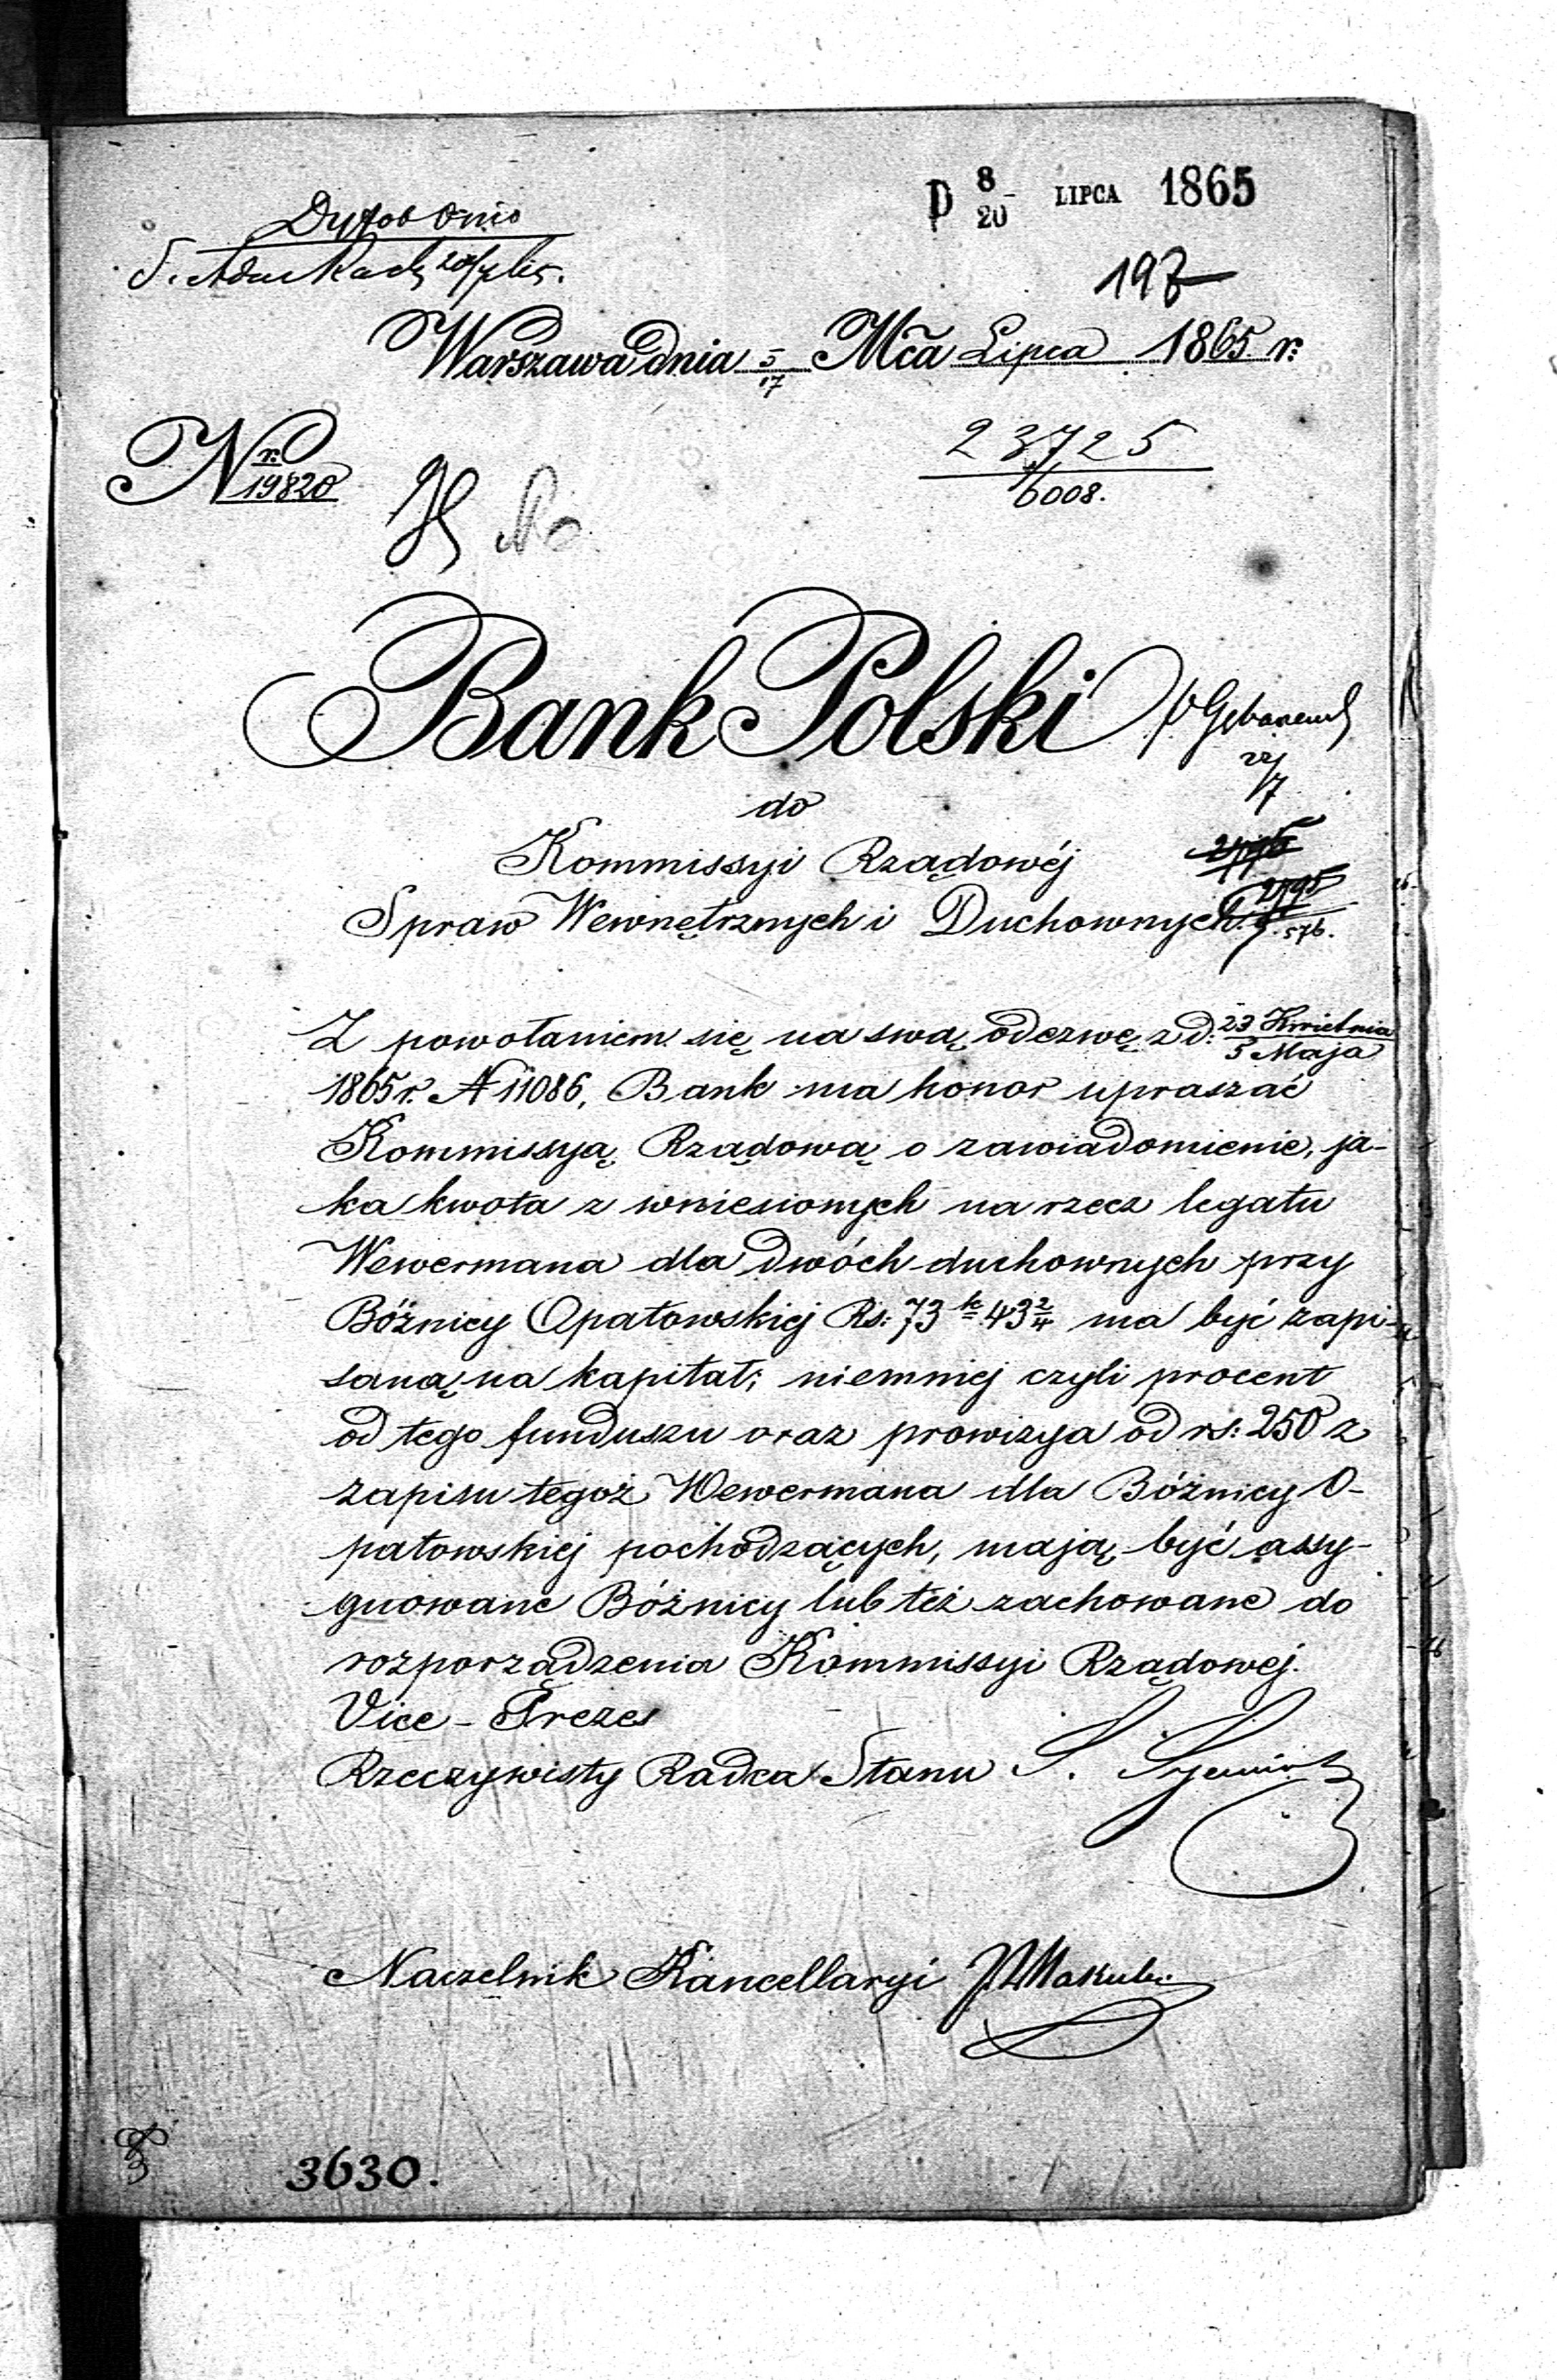 D 8/20 LIPCA 1865
197
Warszawa dnia 5/17 Mca Lipca 1865 r:
Nr. 19820
23725
6008.
Bank Polski
22/7
do
Kommissyi Rządowéj
Spraw Wewnętrznych i Duchownych.
Z powołaniem się na swą odezwę z d: 23 Kwietnia/5 Maja
1865 r. N 11086, Bank ma honor upraszać
Kommissyą Rządową o zawiadomienie, ja-
ka kwota z wniesionych na rzecz legatu
Wewermana dla dwóch duchownych przy
Bóżnicy Opatowskiej Rs: 73 k 43 2/4 ma być zapi-
saną na kapitał; niemniej czyli procent
od tego funduszu oraz prowizya od rs: 250 z
zapisu tegoż Wewermana dla Bóżnicy O-
patowskiej pochodzących, mają być assy-
gnowane Bóżnicy lub też zachowane do
rozporządzenia Kommissyi Rządowej.
Vice-Prezes
Rzeczywisty Radca Stanu
Naczelnik Kancellaryi
3630.